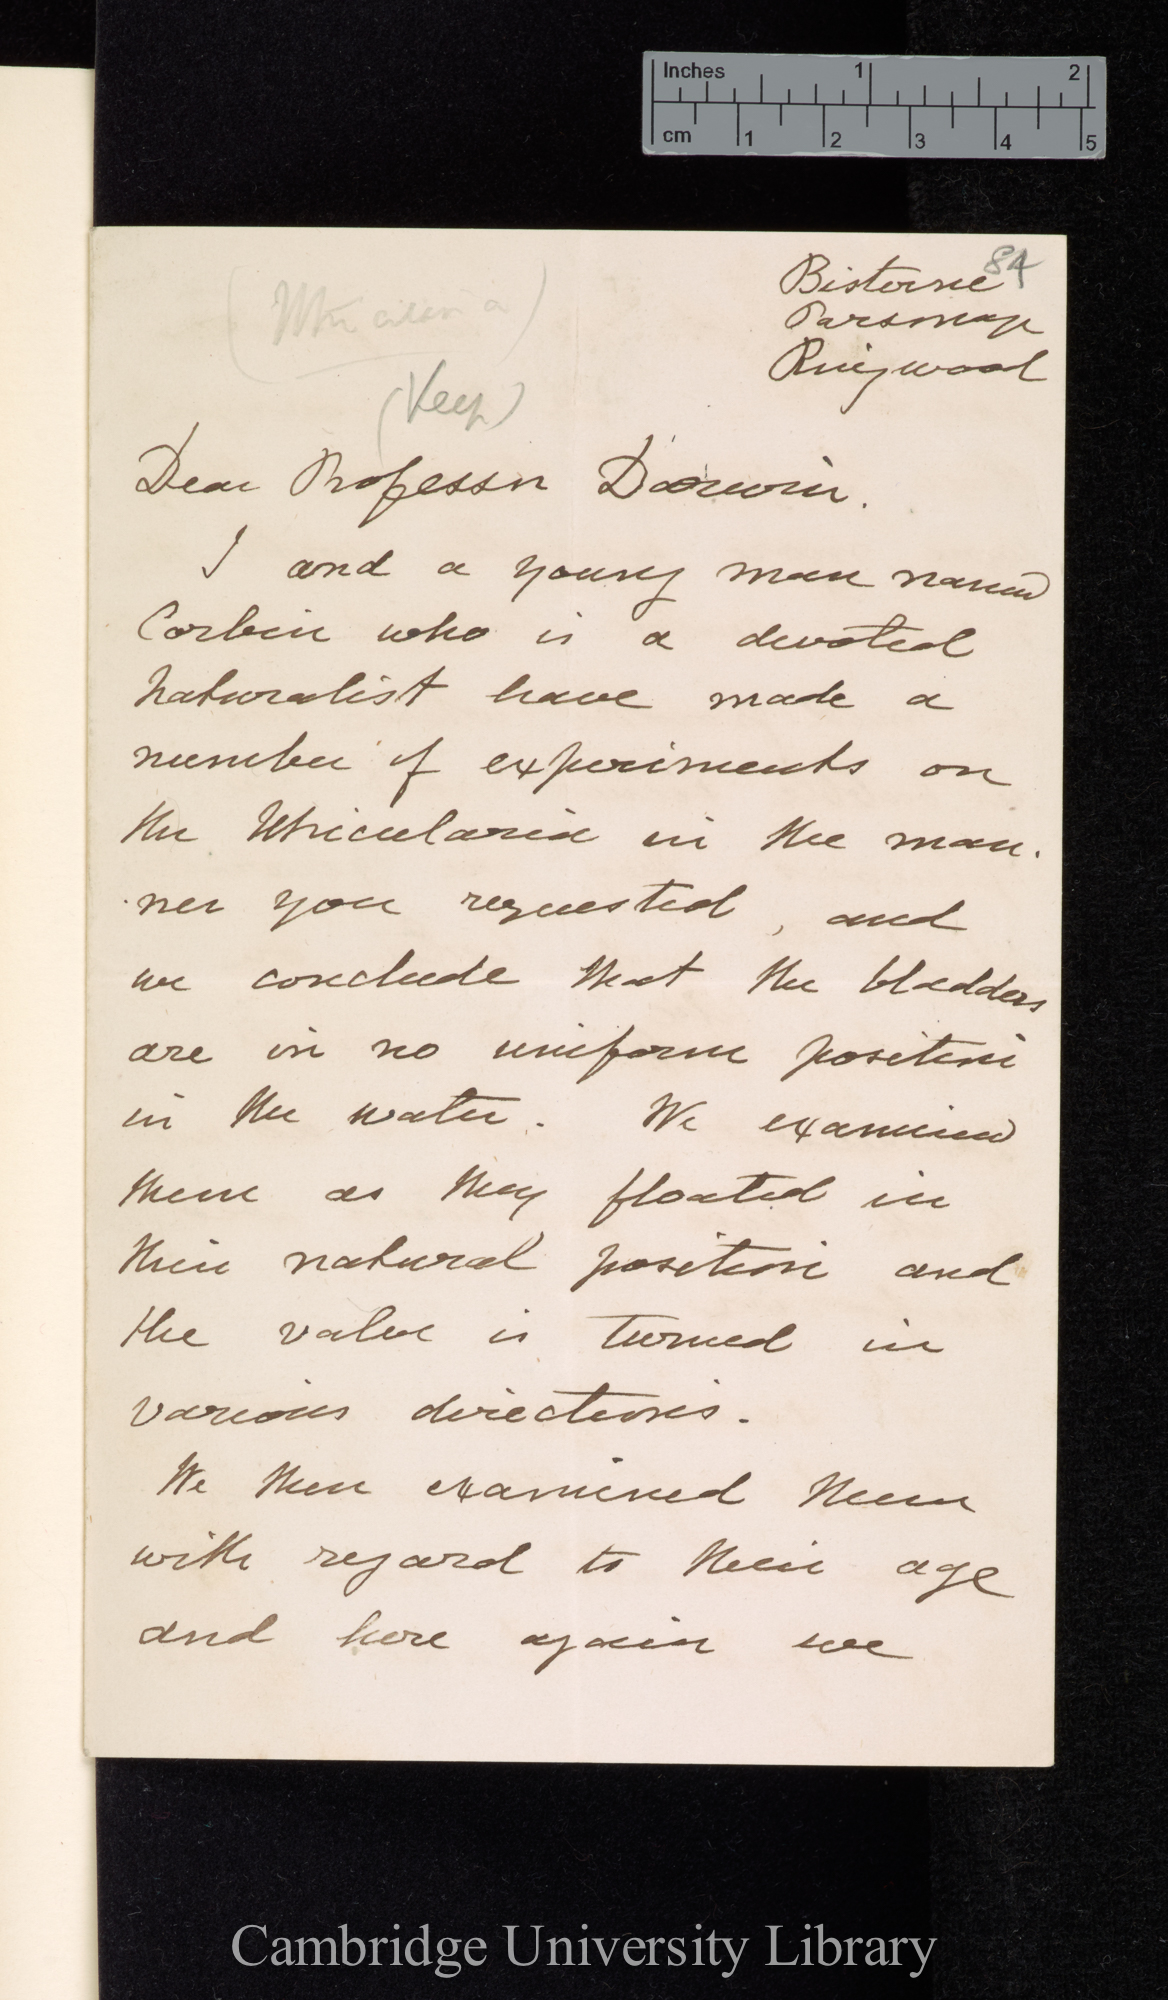 Inches 1 2
cm 1 2 3 4 5
84
Bisterne
Parsonage
Ringwood
(Utricularia)
(Keep)
Dear Professor Darwin.
I and a young man named
Corbin who is a devoted
naturalist have made a
number of experiments on
the Utricularia in the man-
-ner you requested, and
we conclude that the bladders
are in no uniform position
in the water. We examined
them as they floated in
their natural position and
the valve is turned in
various directions.
We then examined them
with regard to their age
and here again we
Cambridge University Library